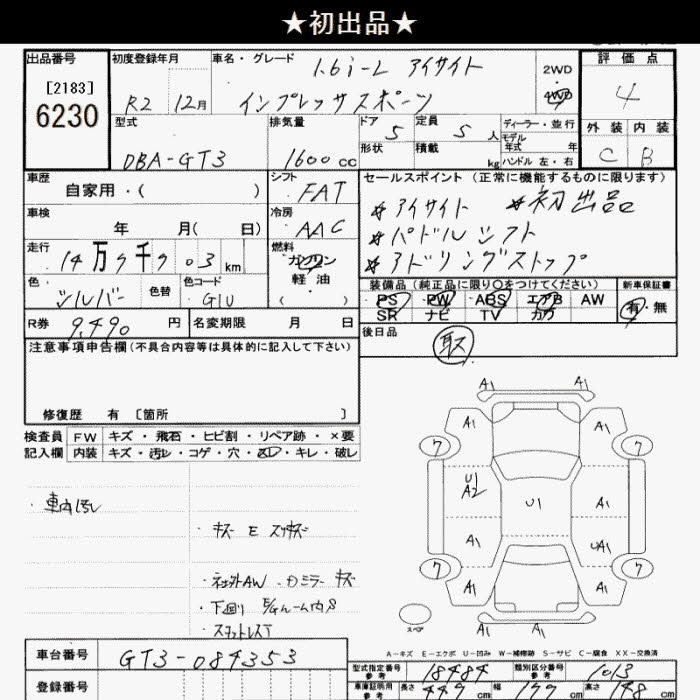 ★初出品★
出品番号
[2183]
6230
初度登録年月
R2 12月
車名・グレード
1.6i-L アイサイト
インプレッサスポーツ
2WD
4WD
評価点
4
外装 内装
C B
型式
DBA-GT3
排気量
1600cc
ドア
5
定員
5人
ディーラー・並行
モデル年式 年
形状
積載 kg
ハンドル 左・右
車歴
自家用・( )
シフト
FAT
車検
年 月( 日)
冷房
AAC
走行
14万7千703km
燃料
ガソリン
軽油
( )
色
シルバー
色替
色コード
G1U
R券
9,490円
名変期限 月 日
セールスポイント(正常に機能するものに限ります)
*アイサイト *初出品
*パドルシフト
*アドリングストップ
装備品(純正品に限り○をつけてください)
PS PW ABS エアB AW
SR ナビ TV カワ
新車保証書
有・無
後日品
取
注意事項申告欄(不具合内容等は具体的に記入して下さい)
修復歴 有 〔箇所 〕
検査員記入欄
FW キズ・飛石・ヒビ割・リペア跡・×要
内装 キズ・汚レ・コゲ・穴・凹・キレ・破レ
・車内汚レ
・キズ E スリキズ
・社外AW ・Dミラーキズ
・下廻り E/gルーム内S
A1 A1
A1 A1
7 7
U1
A2
U1
A1
A1 UA1
7 7
A1 A1
A1 A1
スペア
A-キズ E-エクボ U-凹み W-補修跡 S-サビ C-腐食 XX-交換済
車台番号
GT3-084353
登録番号
型式指定番号
参考
18484
類別区分番号
参考
1013
車庫証明用
参考
長さ 449cm 幅 177cm 高さ 148cm